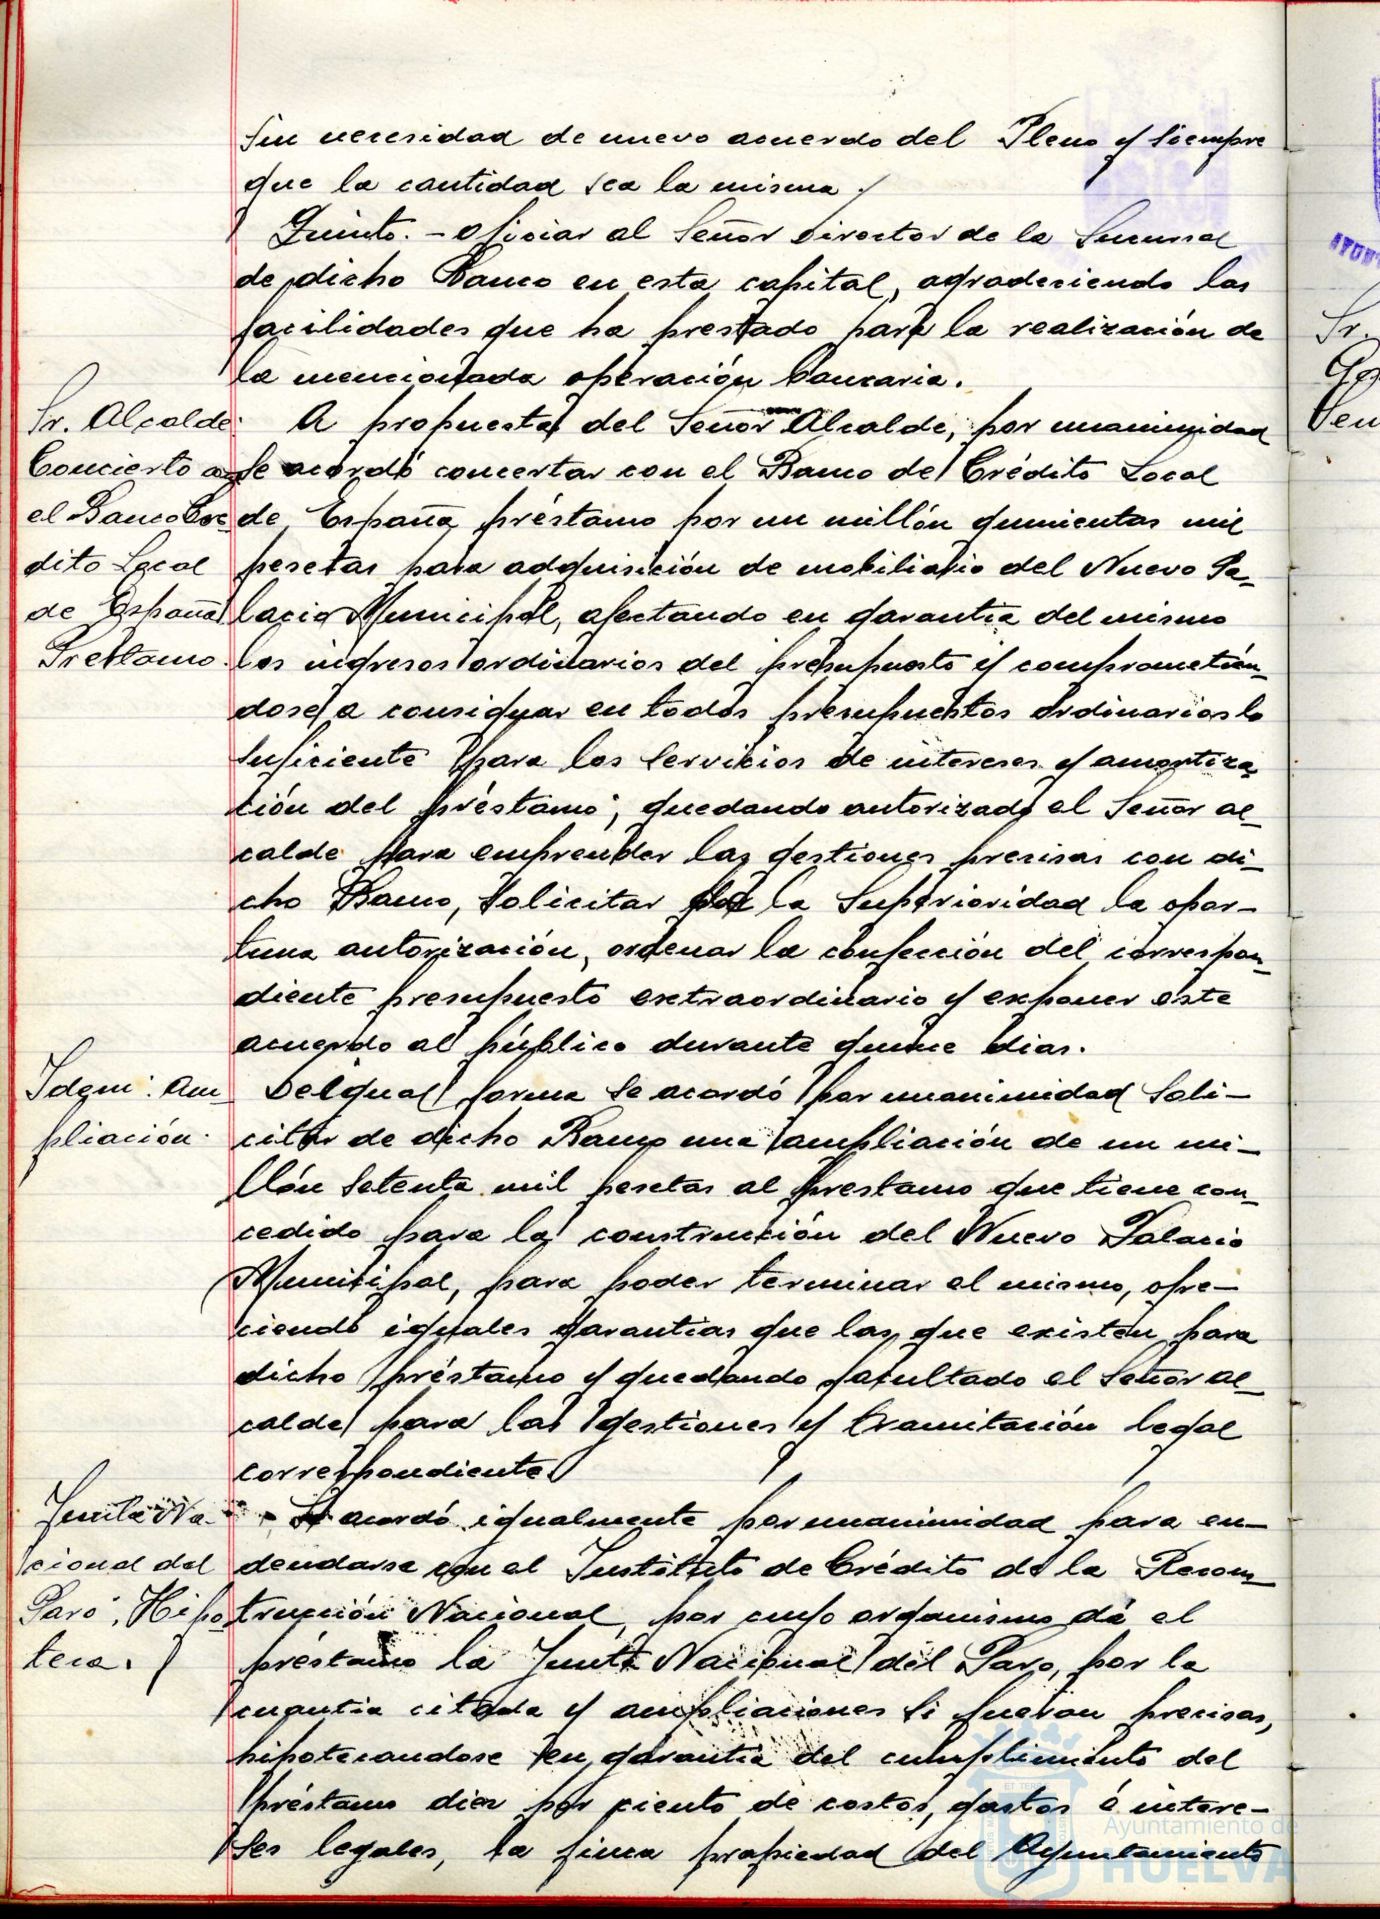 sin necesidad de nuevo acuerdo del Pleno y siempre
que la cantidad sea la misma.
Quinto.- Oficiar al Señor Director de la Sucursal
de dicho Banco en esta capital, agradeciendo las
facilidades que ha prestado para la realización de
la mencionada operación bancaria.
Sr. Alcalde
Concierto con
el Banco Cre
dito Local
de España
Prestamo.
A propuesta del Señor Alcalde, por unanimidad
se acordó concertar con el Banco de Crédito Local
de España préstamo por un millón quinientas mil
pesetas para adquisición de mobiliario del Nuevo Pa-
lacio Municipal, afectando en garantía del mismo
los ingresos ordinarios del presupuesto y comprometién-
dose a consignar en todos presupuestos ordinarios lo
suficiente para los servicios de intereses y amortiza-
ción del préstamo, quedando autorizado el Señor al-
calde para emprender las gestiones precisas con di-
cho Banco, solicitar de la Superioridad la opor-
tuna autorización, ordenar la confección del correspon-
diente presupuesto extraordinario y exponer este
acuerdo al público durante quince dias.
Idem. Am-
pliación.
De igual forma se acordó por unanimidad soli-
citar de dicho Banco una ampliación de un mi-
llón setenta mil pesetas al prestamo que tiene con-
cedido para la construcción del Nuevo Palacio
Municipal, para poder terminar el mismo, ofre-
ciendo iguales garantias que las que existen para
dicho préstamo y quedando facultado el Señor al-
calde para las gestiones y tramitación legal
correspondiente.
Junta Na-
cional del
Paro, Hipo
teca.
Se acordó igualmente por unanimidad para en-
deudarse con el Instituto de Crédito de la Recons-
trucción Nacional, por cuyo organismo dá el
préstamo la Junta Nacional del Paro, por la
cuantia citada y ampliaciones si fueran precisas,
hipotecandose en garantia del cumplimiento del
préstamo diez por ciento de costos, gastos é intere-
ses legales, la finca propiedad del Ayuntamiento
Sr.
Ayuntamiento de
HUELVA